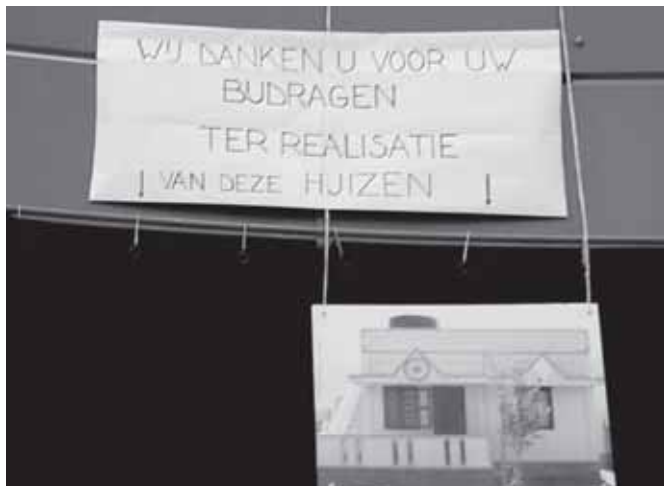 WIJ DANKEN U VOOR UW
BIJDRAGEN
TER REALISATIE
! VAN DEZE HUIZEN !